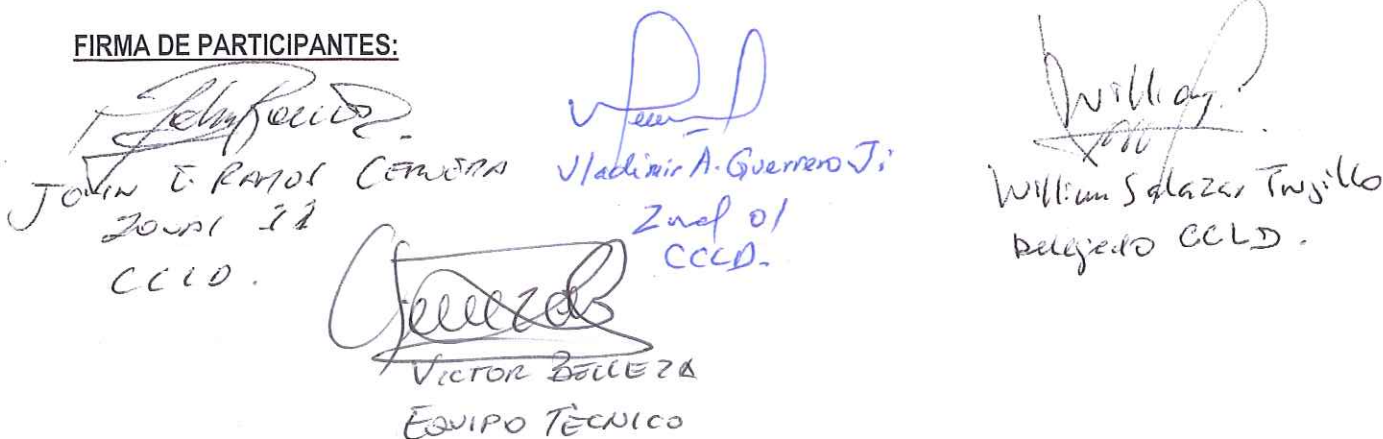 FIRMA DE PARTICIPANTES:
JOHN E. RAMOS CERVERA
ZONAL 11
CCLD.
Vladimir A. Guerrero Ji
Zonal 01
CCLD.
William Salazar Trujillo
Delegado CCLD.
VICTOR BELLEZA
EQUIPO TÈCNICO